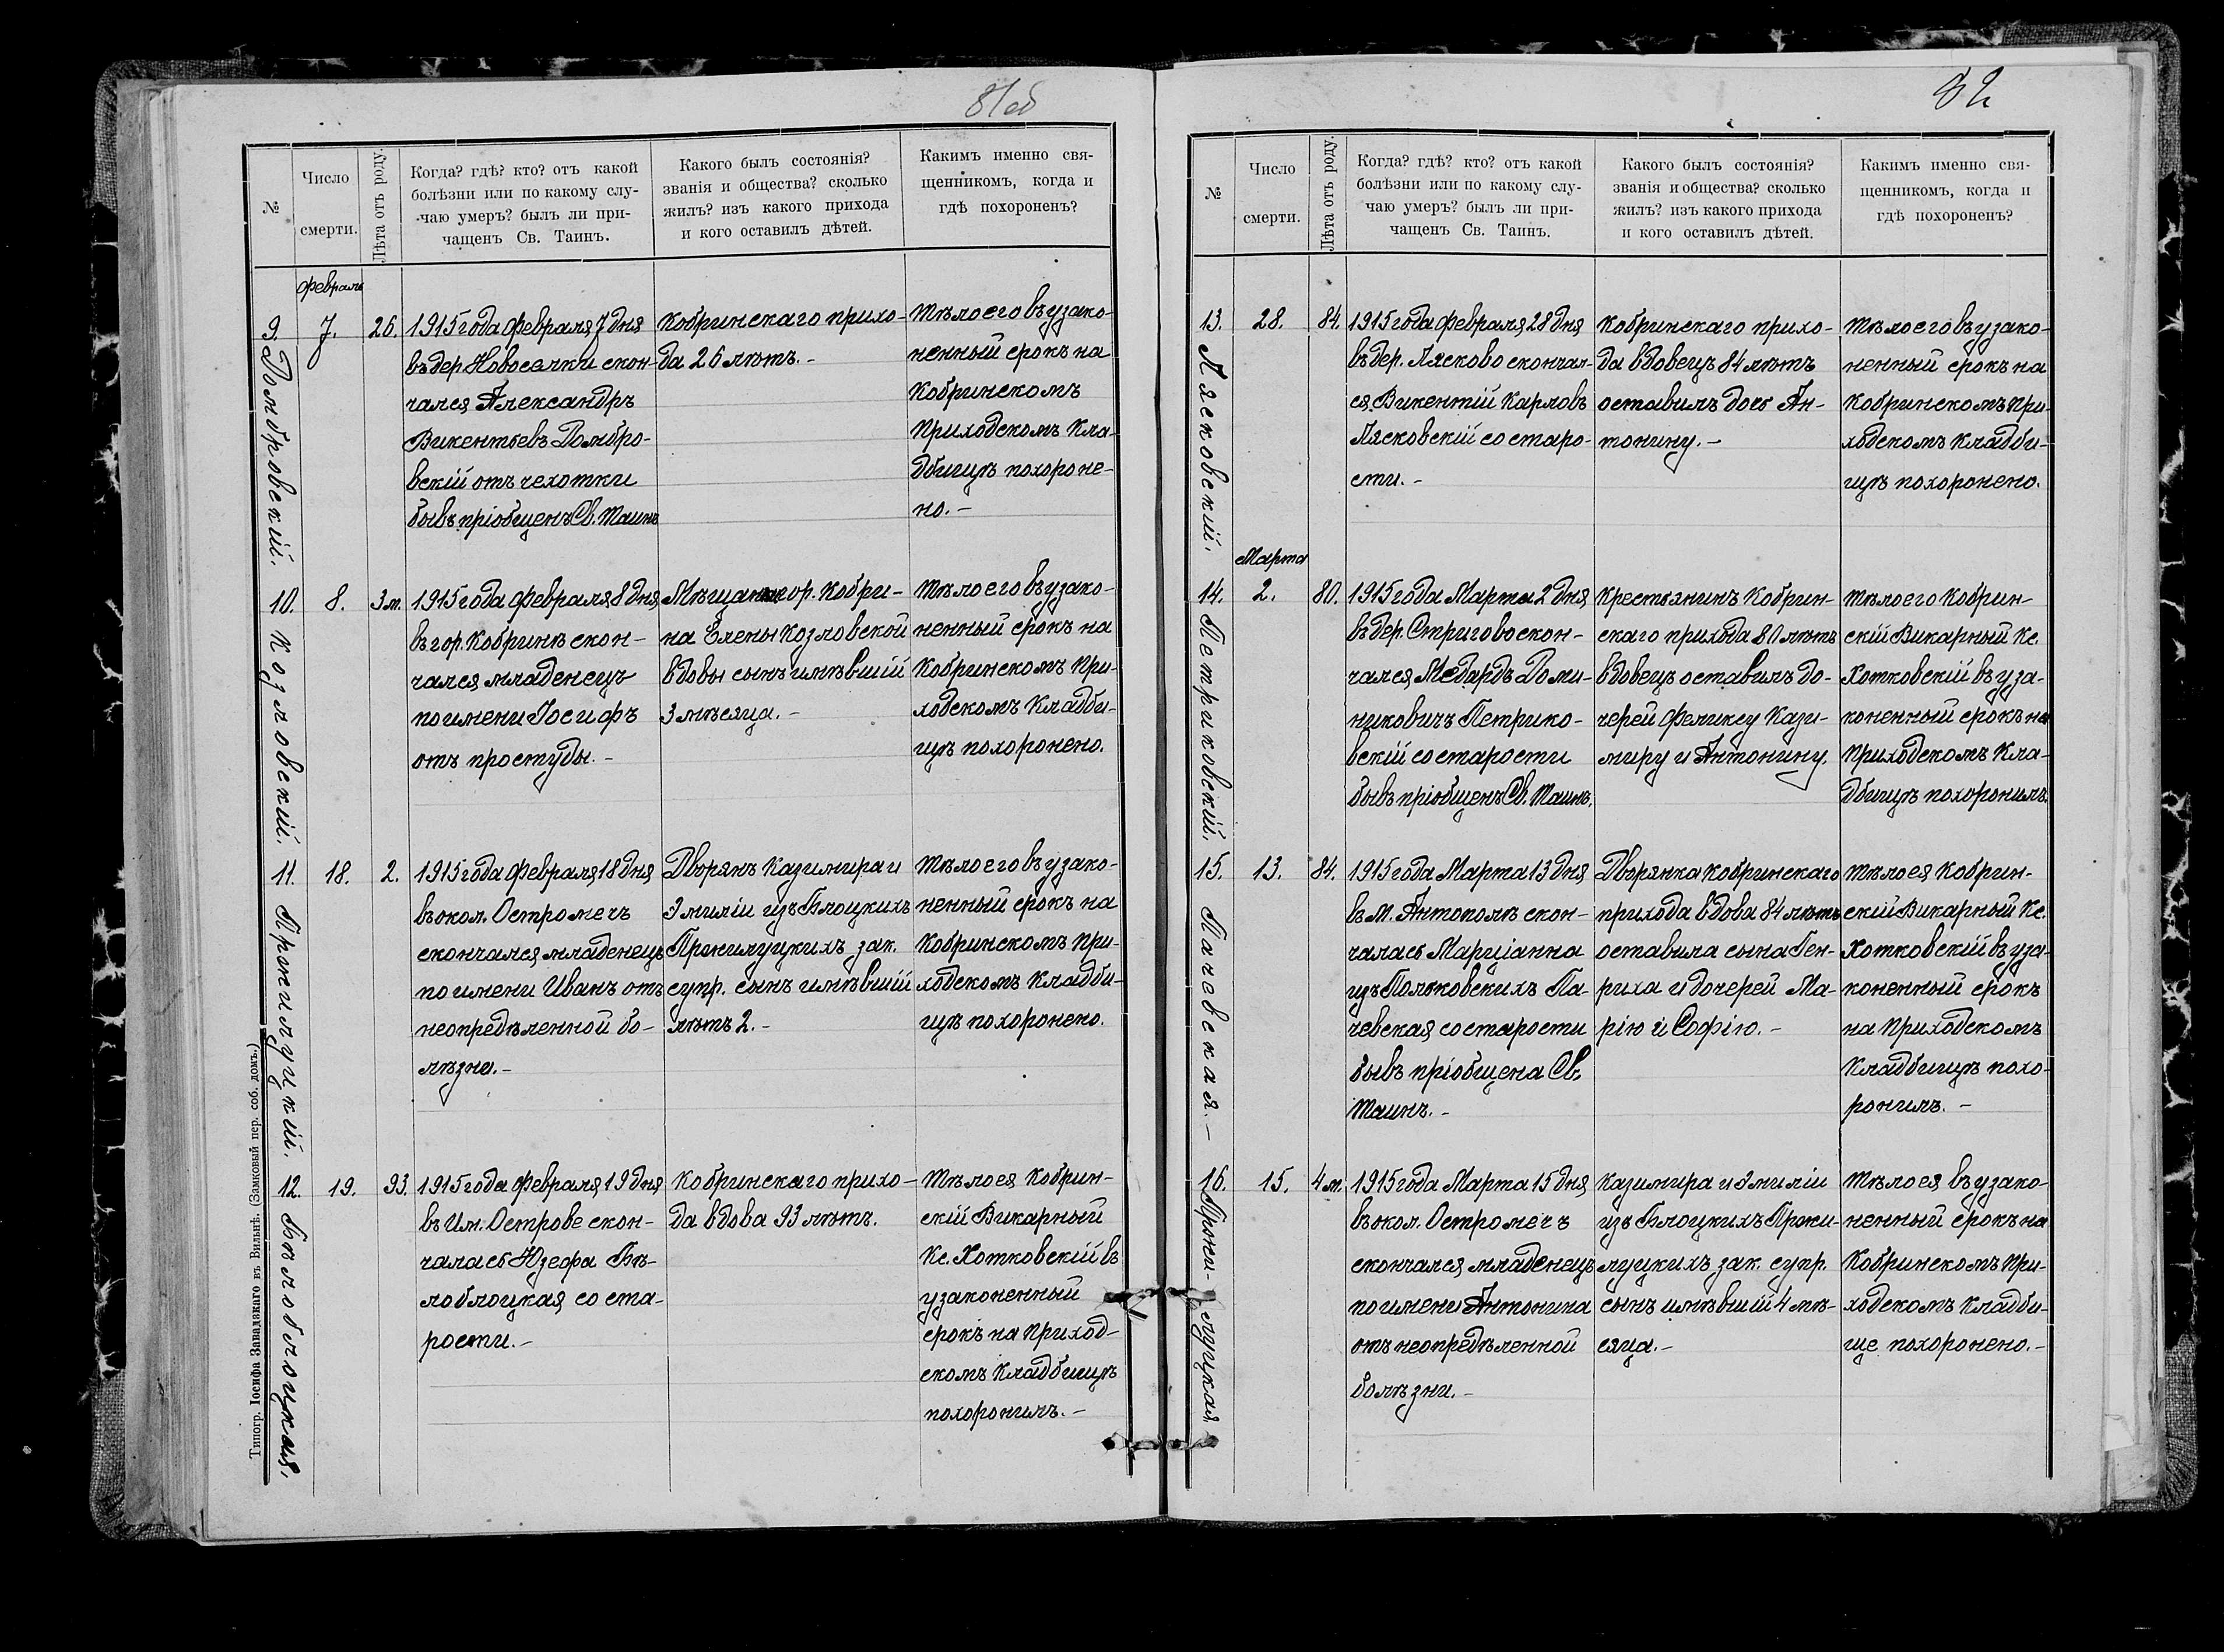 81об
№
Число
смерти.
Лѣта отъ роду.
Когда? гдѣ? кто? отъ какой
болѣзни или по какому слу-
чаю умеръ? былъ ли при-
чащенъ Св. Таинъ.
Какого былъ состоянія?
званія и общества? сколько
жилъ? изъ какого прихода
и кого оставилъ дѣтей.
Какимъ именно свя-
щенникомъ, когда и
гдѣ похороненъ?
Февраль
9.
Домбровскій.
7.
26.
1915 года Февраля 7 дня
въ дер. Новоселки скон-
чался Александръ
Викентьевъ Домбро-
вскій отъ чехотки
бывъ пріобщенъ Св. Таинъ
Кобринскаго прихо-
да 26 лѣтъ. -
Тѣло его въ узако-
ненный срокъ на
Кобринскомъ
Приходскомъ Кла-
дбищѣ похороне-
но. -
10.
Козловскій.
8.
3 м.
1915 года Февраля 8 дня
въ гор. Кобринѣ скон-
чался младенецъ
по имени Іосифъ
отъ простуды. -
гор. Кобри-
на Елены Козловской
вдовы сынъ имѣвшій
3 мѣсяца. -
Тѣло его въ узако-
ненный срокъ на
Кобринскомъ При-
ходскомъ Кладби-
щѣ похоронено.
11.
Пржилуцкій.
18.
2.
1915 года Февраля 18 дня
въ окол. Остромечъ
скончался младенецъ
по имени Иванъ отъ
неопредѣленной бо-
лѣзни. -
Дворянъ Казимира и
Эмиліи изъ Блоцкихъ
Пржилуцкихъ зак.
супр. сынъ имѣвшій
лѣтъ 2. -
Тѣло его въ узако-
ненный срокъ на
Кобринскомъ При-
ходскомъ Кладби-
щѣ похоронено.
12.
Бѣлоблоцкая.
19.
93.
1915 года Февраля 19 дня
въ Им. Острове скон-
чалась Юзефа Бѣ-
лоблоцкая со ста-
рости. -
Кобринскаго прихо-
да вдова 93 лѣтъ.
Тѣло ея Кобрин-
скій Викарный
Кс. Хотковскій въ
узаконенный
срокъ на Приход-
скомъ Кладбищѣ
похоронилъ. -
Типогр. Іосифа Завадзкаго въ Вильнѣ. (Замковый пер. соб. домъ.)
82
№
Число
смерти.
Лѣта отъ роду.
Когда? гдѣ? кто? отъ какой
болѣзни или по какому слу-
чаю умеръ? былъ ли при-
чащенъ Св. Таинъ.
Какого былъ состоянія?
званія и общества? сколько
жилъ? изъ какого прихода
и кого оставилъ дѣтей.
Какимъ именно свя-
щенникомъ, когда и
гдѣ похороненъ?
13.
Лясковскій.
28.
84.
1915 года Февраля 28 дня
въ дер. Лясково скончал-
ся Викентій Карловъ
Лясковскій со старо-
сти. -
Кобринскаго прихо-
да вдовецъ 84 лѣтъ
оставилъ дочь Ан-
тонину. -
Тѣло его въ узако-
ненный срокъ на
Кобринскомъ При-
ходскомъ Кладби-
щѣ похоронено.
Марта
14.
Петриковскій.
2.
80.
1915 года Марта 2 дня
въ дер. Стригово скон-
чался Медардъ Доми-
никовичъ Петрико-
вскій со старости
бывъ пріобщенъ Св. Таинъ.
Крестьянинъ Кобрин-
скаго прихода 80 лѣтъ
вдовецъ оставилъ до-
черей Феликсу Кази-
миру и Антонину.
Тѣло его Кобрин-
скій Викарный Кс.
Хотковскій въ уза-
коненный срокъ на
Приходскомъ Кла-
дбищѣ похоронилъ.
15.
Пачевская. -
13.
84.
1915 года Марта 13 дня
въ М. Антополѣ скон-
чалась Марціанна
изъ Польковскихъ Па-
чевская со старости
бывъ пріобщена Св.
Таинъ. -
Дворянка Кобринскаго
прихода вдова 84 лѣтъ
оставила сына Ген-
риха и дочерей Ма-
рію и Софію. -
Тѣло ея Кобрин-
скій Викарный Кс.
Хотковскій въ уза-
коненный срокъ
на Приходскомъ
Кладбищѣ похо-
ронилъ. -
16.
Пржи-луцкая
15.
4 м.
1915 года Марта 15 дня
въ окол. Остромечъ
скончался младенецъ
по имени Антонина
отъ неопредѣленной
болѣзни. -
Казимира и Эмиліи
изъ Блоцкихъ Пржи-
луцкихъ зак. супр.
сынъ имѣвшій 4 мѣ-
сяца. -
Тѣло ея въ узако-
ненный срокъ на
Кобринскомъ При-
ходскомъ Кладби-
ще похоронено. -